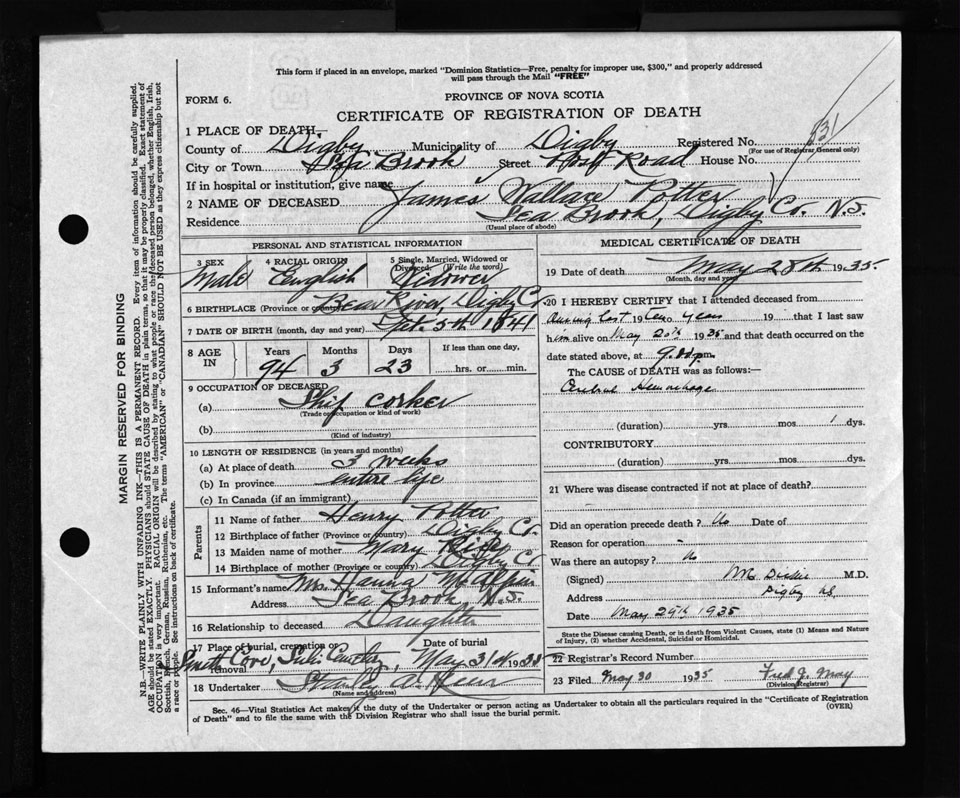 This form if placed in an envelope, marked "Dominion Statistics—Free, penalty for improper use, $300," and properly addressed
will pass through the Mail "FREE"
FORM 6.
PROVINCE OF NOVA SCOTIA
CERTIFICATE OF REGISTRATION OF DEATH
531
1 PLACE OF DEATH—
County of Digby Municipality of Digby Registered No.
(For use of Registrar General only)
City or Town Sea Brook Street Post Road House No.
If in hospital or institution, give name
2 NAME OF DECEASED James Wallace Potter
Residence Sea Brook, Digby Co. N.S.
(Usual place of abode)
PERSONAL AND STATISTICAL INFORMATION
3 SEX Male 4 RACIAL ORIGIN English 5 Single, Married, Widowed or Divorced. (Write the word) Widower
6 BIRTHPLACE (Province or country) Bear River, Digby Co.
7 DATE OF BIRTH (month, day and year) Sept. 5th 1841
8 AGE IN Years 94 Months 3 Days 23 If less than one day, hrs. or min.
9 OCCUPATION OF DECEASED
(a) Ship Corker
(Trade or occupation or kind of work)
(b)
(Kind of industry)
10 LENGTH OF RESIDENCE (in years and months)
(a) At place of death 3 weeks
(b) In province entire life
(c) In Canada (if an immigrant)
Parents
11 Name of father Henry Potter
12 Birthplace of father (Province or country) Digby Co.
13 Maiden name of mother Mary
14 Birthplace of mother (Province or country) Digby Co
15 Informant's name Mrs. Hanna
Address Sea Brook N.S.
16 Relationship to deceased Daughter
17 Place of burial, cremation or removal Smith Cove, Cemetery, Date of burial May 31st 1935
18 Undertaker Stanley A.
(Name and address)
MEDICAL CERTIFICATE OF DEATH
19 Date of death May 28th 1935
(Month, day and year)
20 I HEREBY CERTIFY that I attended deceased from
During last two years 19 that I last saw
him alive on May 20th 1935 and that death occurred on the
date stated above, at 9. p.m.
The CAUSE OF DEATH was as follows:—
Cerebral Hemorrhage
(duration) yrs. mos. 1 dys.
CONTRIBUTORY
(duration) yrs. mos. dys.
21 Where was disease contracted if not at place of death?
Did an operation precede death? No Date of
Reason for operation -
Was there an autopsy? No
(Signed) M.D.
Address Digby N.S.
Date May 29th, 1935
State the Disease causing Death, or in death from Violent Causes, state (1) Means and Nature
of Injury, (2) whether Accidental, Suicidal or Homicidal.
22 Registrar's Record Number
23 Filed May 30 1935 Fred J. May
(Division Registrar)
Sec. 46—Vital Statistics Act makes it the duty of the Undertaker or person acting as Undertaker to obtain all the particulars required in the "Certificate of Registration
of Death" and to file the same with the Division Registrar who shall issue the burial permit.
(OVER)
MARGIN RESERVED FOR BINDING
N.B.—WRITE PLAINLY WITH UNFADING INK—THIS IS A PERMANENT RECORD. Every item of information should be carefully supplied.
AGE should be stated EXACTLY. PHYSICIANS should STATE CAUSE OF DEATH in plain terms, so that it may be properly classified. Exact statement of
OCCUPATION is very important. RACIAL ORIGIN will be described by stating to what people or race the deceased person belonged, whether English, Irish,
Scottish, French, German, Russian, Ruthenian, etc. The terms "AMERICAN" or "CANADIAN" SHOULD NOT BE USED as they express citizenship but not
a race or people. See instructions on back of certificate.